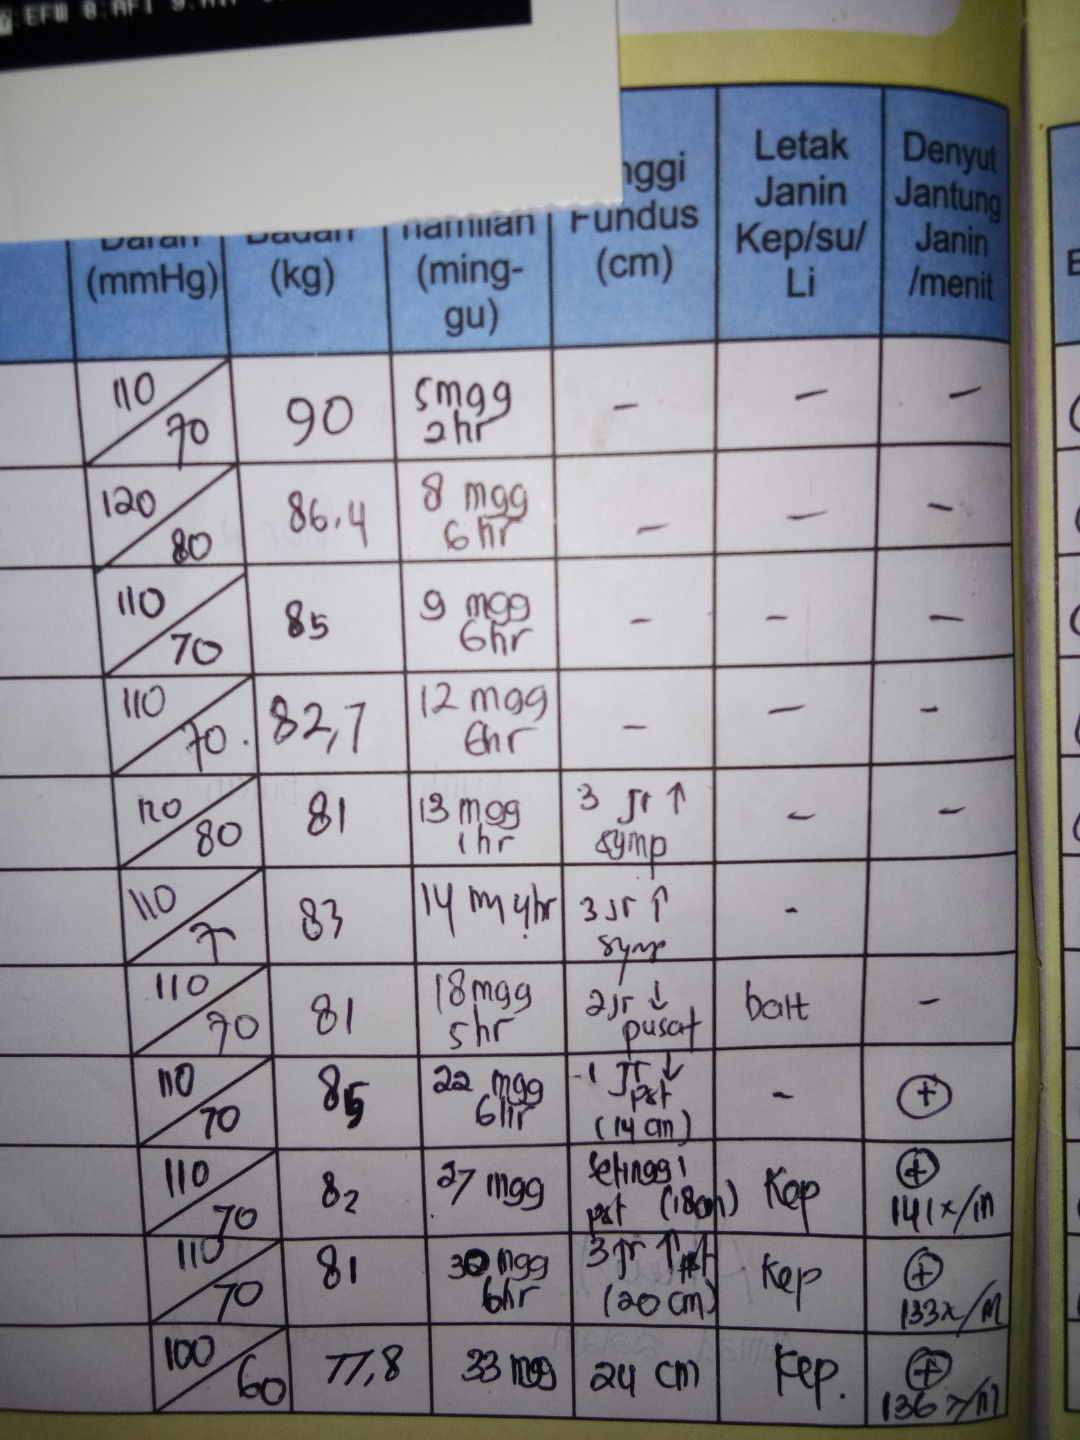 EFW 8:AFI
Darah
(mmHg)
Badan
(kg)
hamilan
(ming-
gu)
nggi
Fundus
(cm)
Letak
Janin
Kep/su/
Li
Denyut
Jantung
Janin
/menit
110/70 90 5mgg 2hr - - -
120/80 86.4 8 mgg 6 hr - - -
110/70 85 9 mgg 6hr - - -
110/70. 82,7 12 mgg 6hr - - -
120/80 81 13 mgg 1hr 3 jr ↑ symp - -
110/ 83 14 m 4hr 3 jr ↑ symp -
110/70 81 18mgg 5 hr 2jr ↓ pusat ball -
110/70 85 22 mgg 6hr 1 jr ↓ pst (14 cm) - (+)
110/70 82 27 mgg setinggi pst (18cm) Kep (+) 141x/m
110/70 81 30 mgg 6hr 3 jr ↑ pst (20 cm) Kep (+) 133x/m
100/60 77,8 33 mgg 24 cm Kep. (+) 136x/m